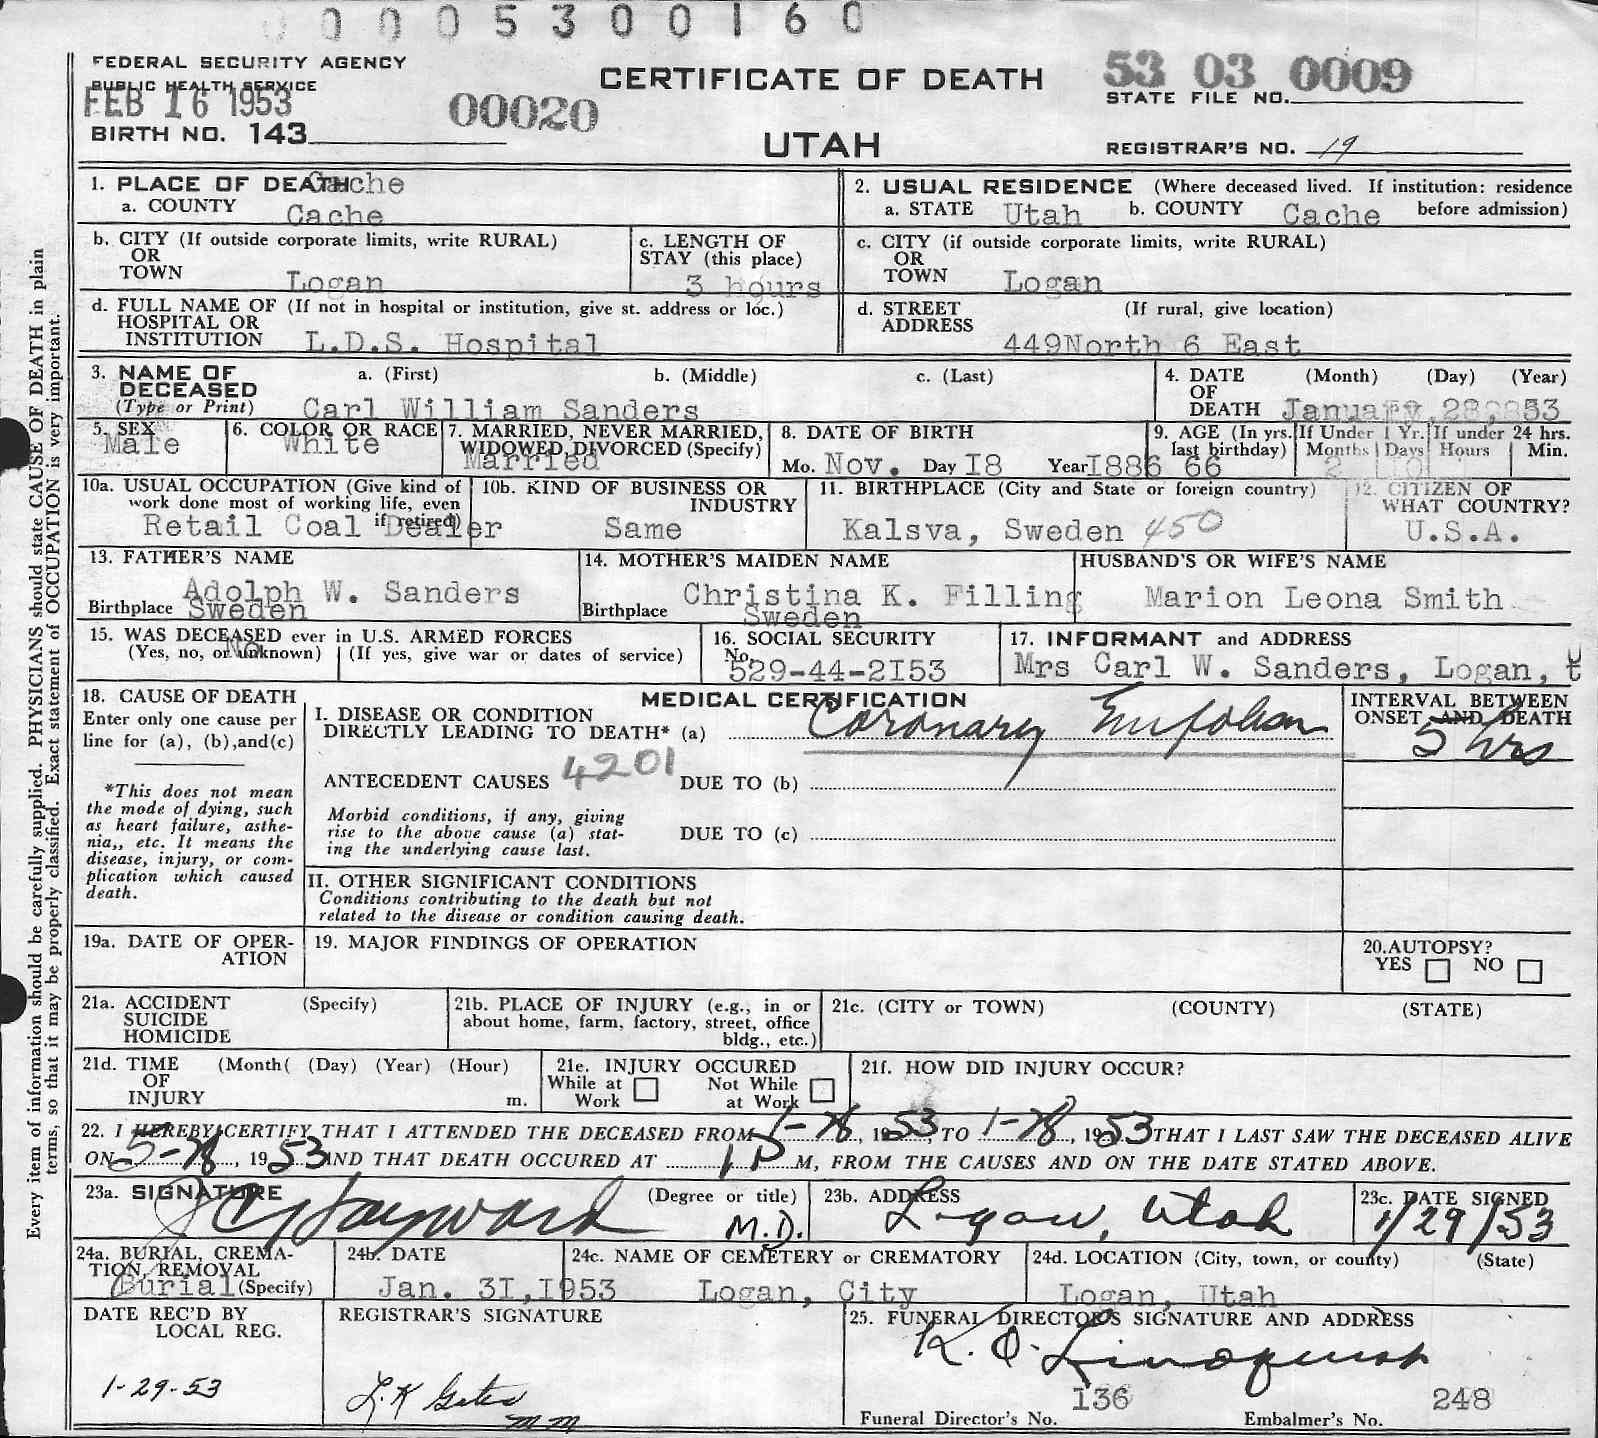 0 0 0 0 5 3 0 0 1 6 0
FEDERAL SECURITY AGENCY
PUBLIC HEALTH SERVICE
FEB 16 1953
BIRTH NO. 143
00020
CERTIFICATE OF DEATH
UTAH
53 03 0009
STATE FILE NO.
REGISTRAR'S NO. 19
Every item of information should be carefully supplied. PHYSICIANS should state CAUSE OF DEATH in plain
terms, so that it may be properly classified. Exact statement of OCCUPATION is very important.
1. PLACE OF DEATH Cache
a. COUNTY Cache
2. USUAL RESIDENCE (Where deceased lived. If institution: residence before admission)
a. STATE Utah b. COUNTY Cache
b. CITY (If outside corporate limits, write RURAL)
OR
TOWN Logan
c. LENGTH OF
STAY (this place)
3 hours
c. CITY (if outside corporate limits, write RURAL)
OR
TOWN Logan
d. FULL NAME OF (If not in hospital or institution, give st. address or loc.)
HOSPITAL OR
INSTITUTION L.D.S. Hospital
d. STREET (If rural, give location)
ADDRESS
449North 6 East
3. NAME OF DECEASED a. (First) b. (Middle) c. (Last)
(Type or Print) Carl William Sanders
4. DATE (Month) (Day) (Year)
OF
DEATH January 28, 53
5. SEX
Male
6. COLOR OR RACE
White
7. MARRIED, NEVER MARRIED,
WIDOWED, DIVORCED (Specify)
Married
8. DATE OF BIRTH
Mo. Nov. Day I8 Year I886
9. AGE (In yrs. last birthday)
66
If Under 1 Yr.
Months Days
2 10
If under 24 hrs.
Hours Min.
10a. USUAL OCCUPATION (Give kind of
work done most of working life, even
if retired)
Retail Coal Dealer
10b. KIND OF BUSINESS OR
INDUSTRY
Same
11. BIRTHPLACE (City and State or foreign country)
Kalsva, Sweden 450
12. CITIZEN OF
WHAT COUNTRY?
U.S.A.
13. FATHER'S NAME
Adolph W. Sanders
Birthplace Sweden
14. MOTHER'S MAIDEN NAME
Christina K. Filling
Birthplace Sweden
HUSBAND'S OR WIFE'S NAME
Marion Leona Smith
15. WAS DECEASED ever in U.S. ARMED FORCES
(Yes, no, or unknown) (If yes, give war or dates of service)
No
16. SOCIAL SECURITY
No.
529-44-2I53
17. INFORMANT and ADDRESS
Mrs Carl W. Sanders, Logan, U
t
18. CAUSE OF DEATH
Enter only one cause per
line for (a), (b),and(c)
*This does not mean
the mode of dying, such
as heart failure, asthe-
nia,, etc. It means the
disease, injury, or com-
plication which caused
death.
MEDICAL CERTIFICATION
I. DISEASE OR CONDITION
DIRECTLY LEADING TO DEATH* (a) Coronary
ANTECEDENT CAUSES 4201
DUE TO (b)
Morbid conditions, if any, giving
rise to the above cause (a) stat-
ing the underlying cause last.
DUE TO (c)
II. OTHER SIGNIFICANT CONDITIONS
Conditions contributing to the death but not
related to the disease or condition causing death.
INTERVAL BETWEEN
ONSET AND DEATH
5 hrs
19a. DATE OF OPER-
ATION
19. MAJOR FINDINGS OF OPERATION
20.AUTOPSY?
YES NO
21a. ACCIDENT (Specify)
SUICIDE
HOMICIDE
21b. PLACE OF INJURY (e.g., in or
about home, farm, factory, street, office
bldg., etc.)
21c. (CITY or TOWN) (COUNTY) (STATE)
21d. TIME (Month( (Day) (Year) (Hour)
OF
INJURY m.
21e. INJURY OCCURED
While at Work Not While at Work
21f. HOW DID INJURY OCCUR?
22. I HEREBY CERTIFY THAT I ATTENDED THE DECEASED FROM 1-28, 1953, TO 1-28, 1953 THAT I LAST SAW THE DECEASED ALIVE
ON 5-28, 1953 AND THAT DEATH OCCURED AT 1 P M, FROM THE CAUSES AND ON THE DATE STATED ABOVE.
23a. SIGNATURE (Degree or title)
J C Hayward M.D.
23b. ADDRESS
Logan, Utah
23c. DATE SIGNED
1/29/53
24a. BURIAL, CREMA-
TION, REMOVAL
(Specify) Burial
24b. DATE
Jan. 3I, I953
24c. NAME OF CEMETERY or CREMATORY
Logan, City
24d. LOCATION (City, town, or county) (State)
Logan, Utah
DATE REC'D BY
LOCAL REG.
1-29-53
REGISTRAR'S SIGNATURE
L.K Gates
mm
25. FUNERAL DIRECTOR'S SIGNATURE AND ADDRESS
K. O. Lindquist
Funeral Director's No. 136
Embalmer's No. 248